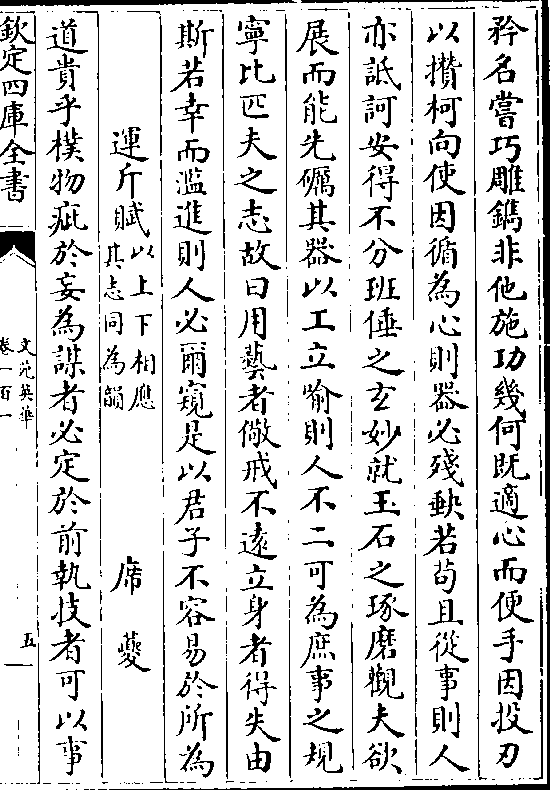 矜名嘗巧雕鐫非他施功幾何既適心而便手因投刃
以攢柯向使因循為心則器必殘缺若茍且從事則人
亦詆訶安得不分班倕之玄妙就玉石之琢磨觀夫欲
展而能先礪其器以工立喻則人不二可為庶事之規
寧比匹夫之志故曰用藝者儆戒不遠立身者得失由
斯若幸而濫進則人必爾窺是以君子不容易於所為
運斤賦以上下相應其志同為韻 席夔
道貴乎樸物疵於妄為謀者必定於前執技者可以事
欽定四庫全書
文苑英華
卷一百一
五